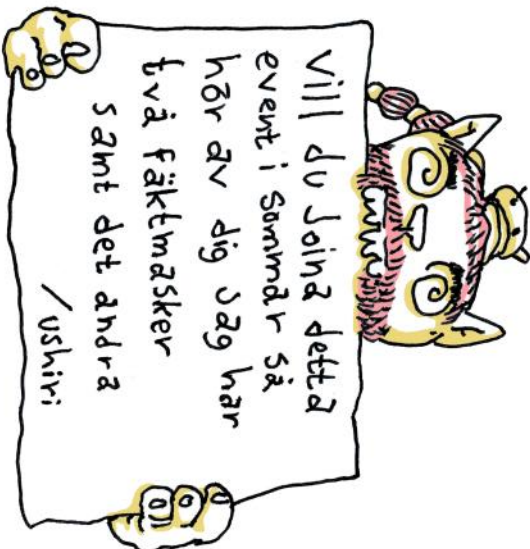 vill du Joina detta
event i sommar så
hör av dig Jag har
två fäktmasker
samt det andra
/ushiri